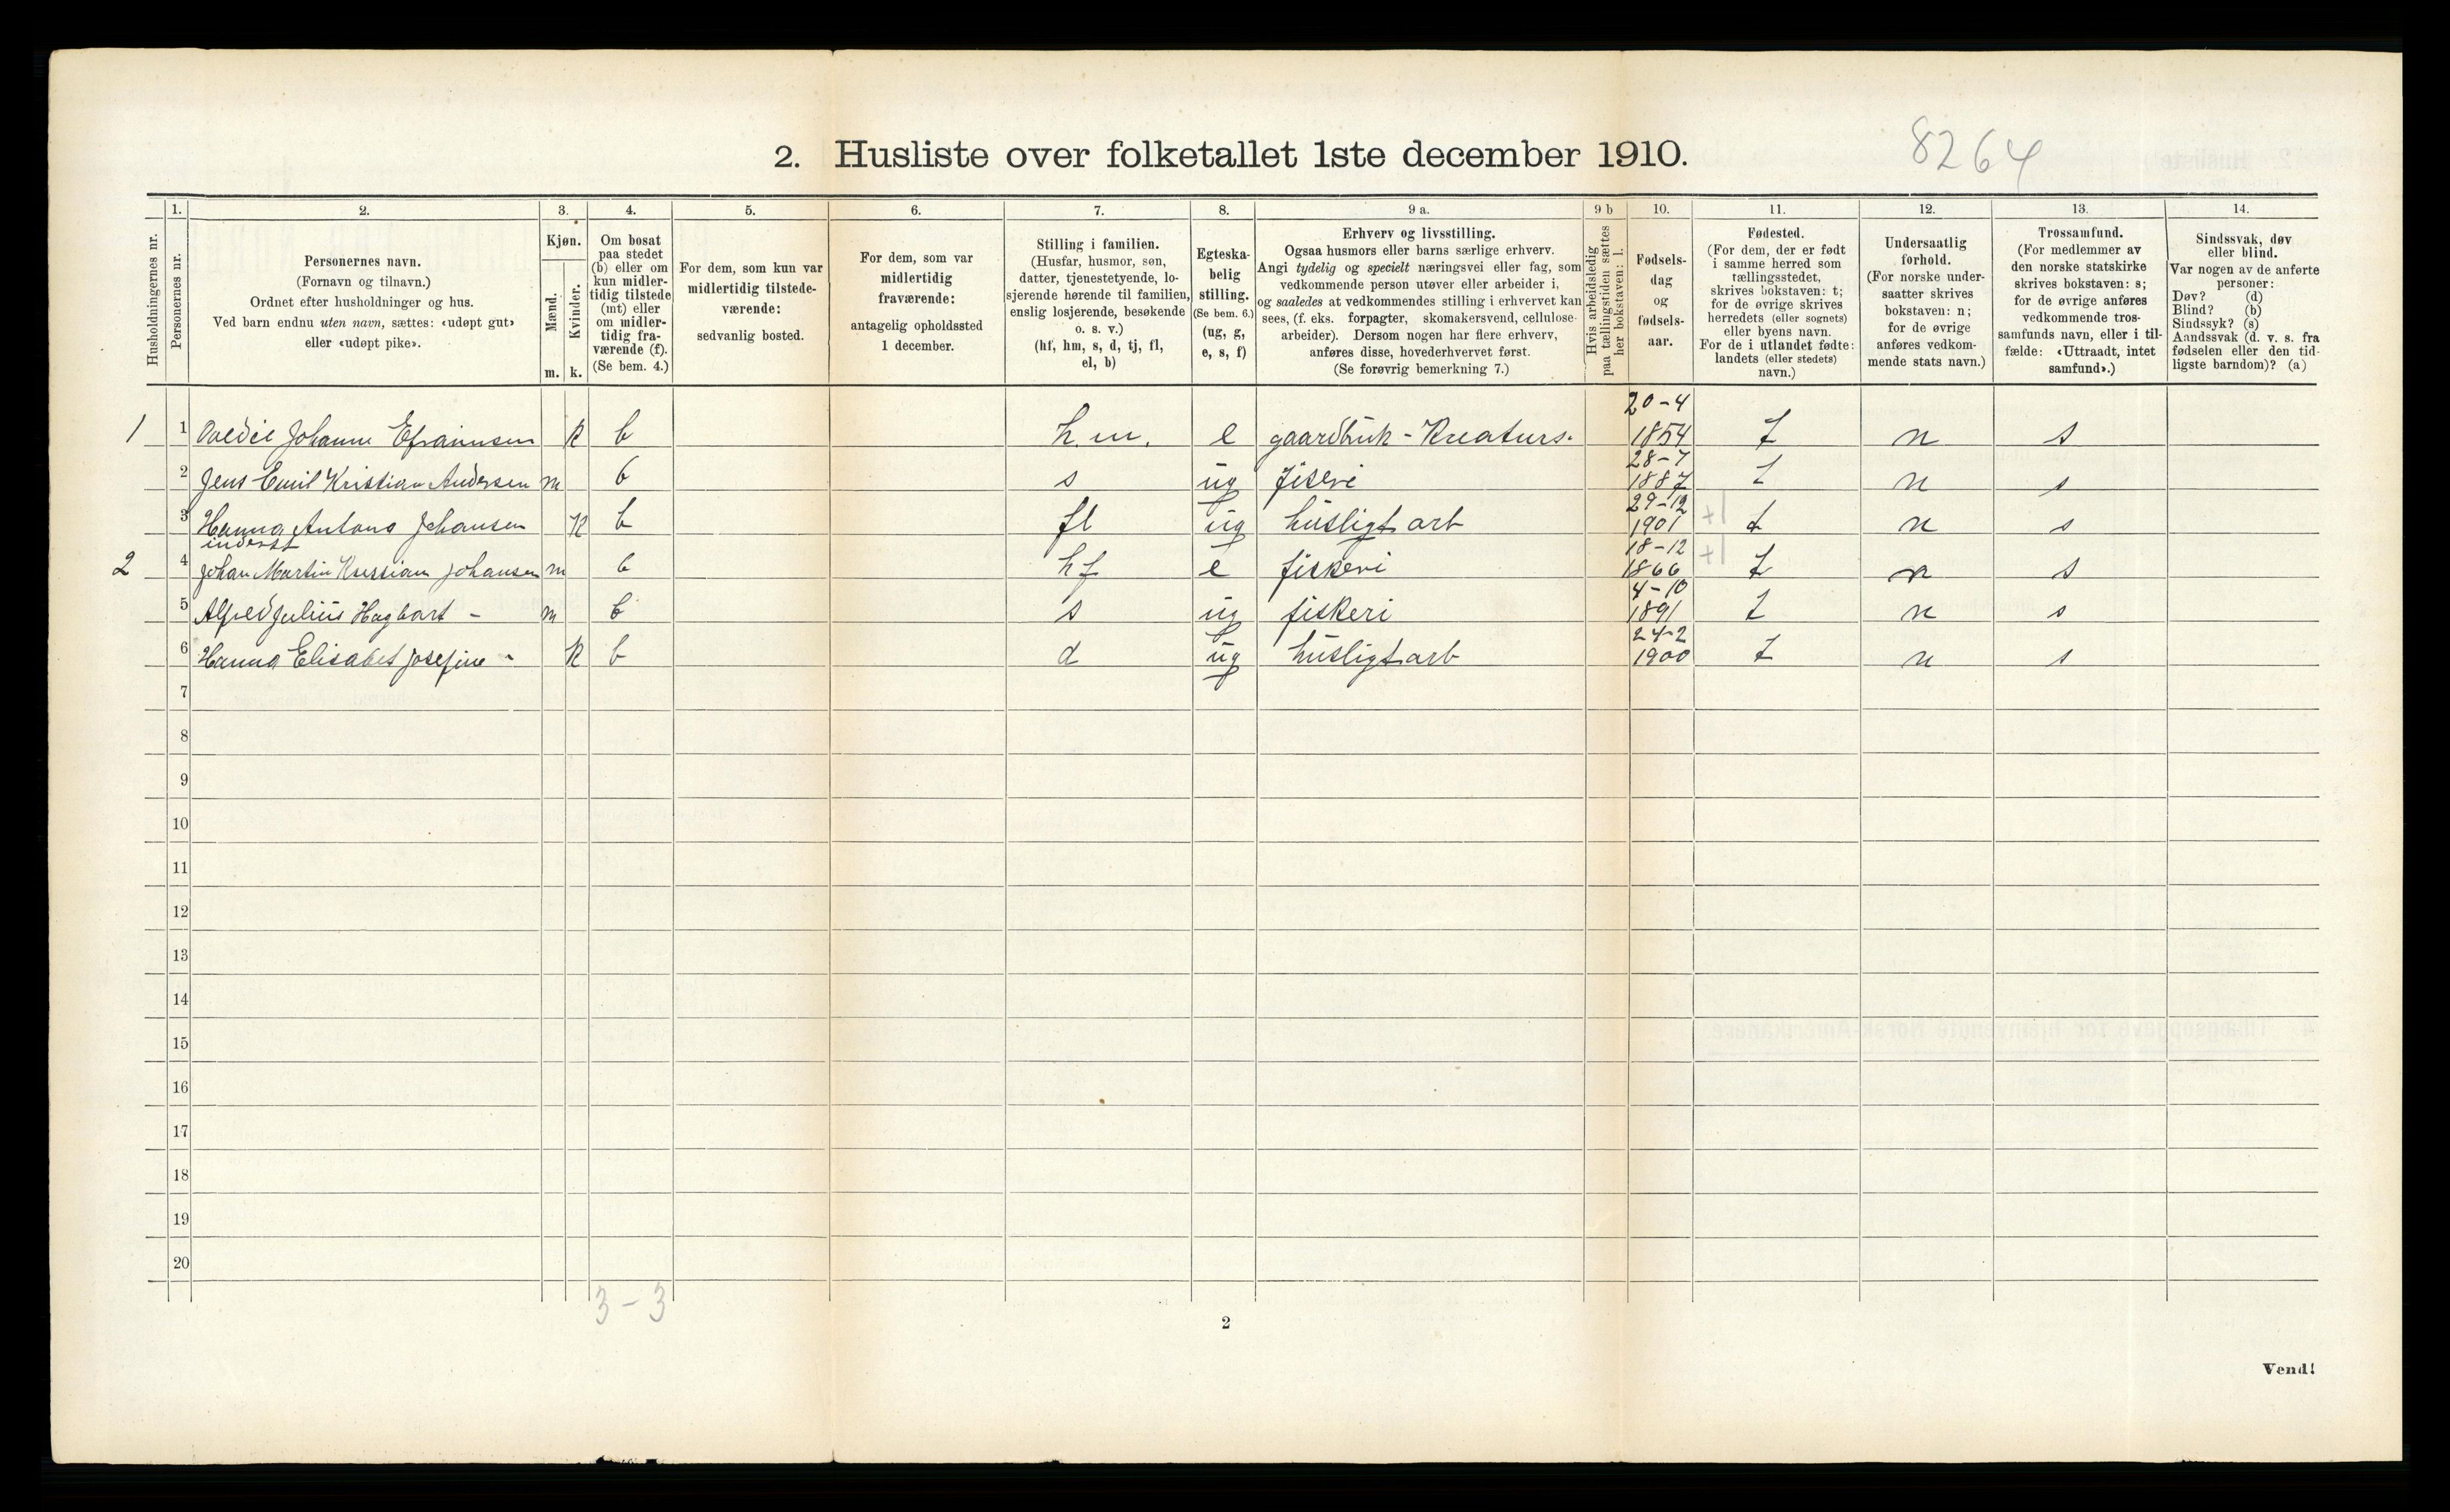 2. Husliste over folketallet 1ste december 1910.
8264
1. 2. 3. 4. 5. 6. 7. 8. 9 a. 9 b 10. 11. 12. 13. 14.
Husholdningernes nr.
Personernes nr.
Personernes navn.
(Fornavn og tilnavn.)
Ordnet efter husholdninger og hus.
Ved barn endnu uten navn, sættes: «udøpt gut»
eller «udøpt pike».
Kjøn.
Mænd.
Kvinder.
m. k.
Om bosat
paa stedet
(b) eller om
kun midler-
tidig tilstede
(mt) eller
om midler-
tidig fra-
værende (f).
(Se bem. 4.)
For dem, som kun var
midlertidig tilstede-
værende:
sedvanlig bosted.
For dem, som var
midlertidig
fraværende:
antagelig opholdssted
1 december.
Stilling i familien.
(Husfar, husmor, søn,
datter, tjenestetyende, lo-
sjerende hørende til familien,
enslig losjerende, besøkende
o. s. v.)
(hf, hm, s, d, tj, fl,
el, b)
Egteska-
belig
stilling.
(Se bem. 6.)
(ug, g,
e, s, f)
Erhverv og livsstilling.
Ogsaa husmors eller barns særlige erhverv.
Angi tydelig og specielt næringsvei eller fag, som
vedkommende person utøver eller arbeider i,
og saaledes at vedkommendes stilling i erhvervet kan
sees, (f. eks. forpagter, skomakersvend, cellulose-
arbeider). Dersom nogen har flere erhverv,
anføres disse, hovederhvervet først.
(Se forøvrig bemerkning 7.)
Hvis arbeidsledig
paa tællingstiden sættes
her bokstaven: l.
Fødsels-
dag
og
fødsels-
aar.
Fødested.
(For dem, der er født
i samme herred som
tællingsstedet,
skrives bokstaven: t;
for de øvrige skrives
herredets (eller sognets)
eller byens navn.
For de i utlandet fødte:
landets (eller stedets)
navn.)
Undersaatlig
forhold.
(For norske under-
saatter skrives
bokstaven: n;
for de øvrige
anføres vedkom-
mende stats navn.)
Trossamfund.
(For medlemmer av
den norske statskirke
skrives bokstaven: s;
for de øvrige anføres
vedkommende tros-
samfunds navn, eller i til-
fælde: «Uttraadt, intet
samfund».)
Sindssvak, døv
eller blind.
Var nogen av de anførte
personer:
Døv? (d)
Blind? (b)
Sindssyk? (s)
Aandssvak (d. v. s. fra
fødselen eller den tid-
ligste barndom)? (a)
1 1 Johanne Efraimsen k b h.m. e gaardbruk - Kreaturs. 20-4 1854 t n s
2 Jens Emil Kristian Andersen m b s ug fiskeri 28-7 1887 t n s
3 Hanna Antona Johansen k b fl ug husligt arb 29-12 1901 +1 t n s
inderst
2 4 Johan Martin Kristian Johansen m b hf e fiskeri 18-12 1866 +1 t n s
5 Alfred Julius Hagbart - m b s ug fiskeri 4-10 1891 t n s
6 Hanna Elisabet Josefine - k b d ug husligt arb 24-2 1900 t n s
7
8
9
10
11
12
13
14
15
16
17
18
19
20
3-3
2
Vend!